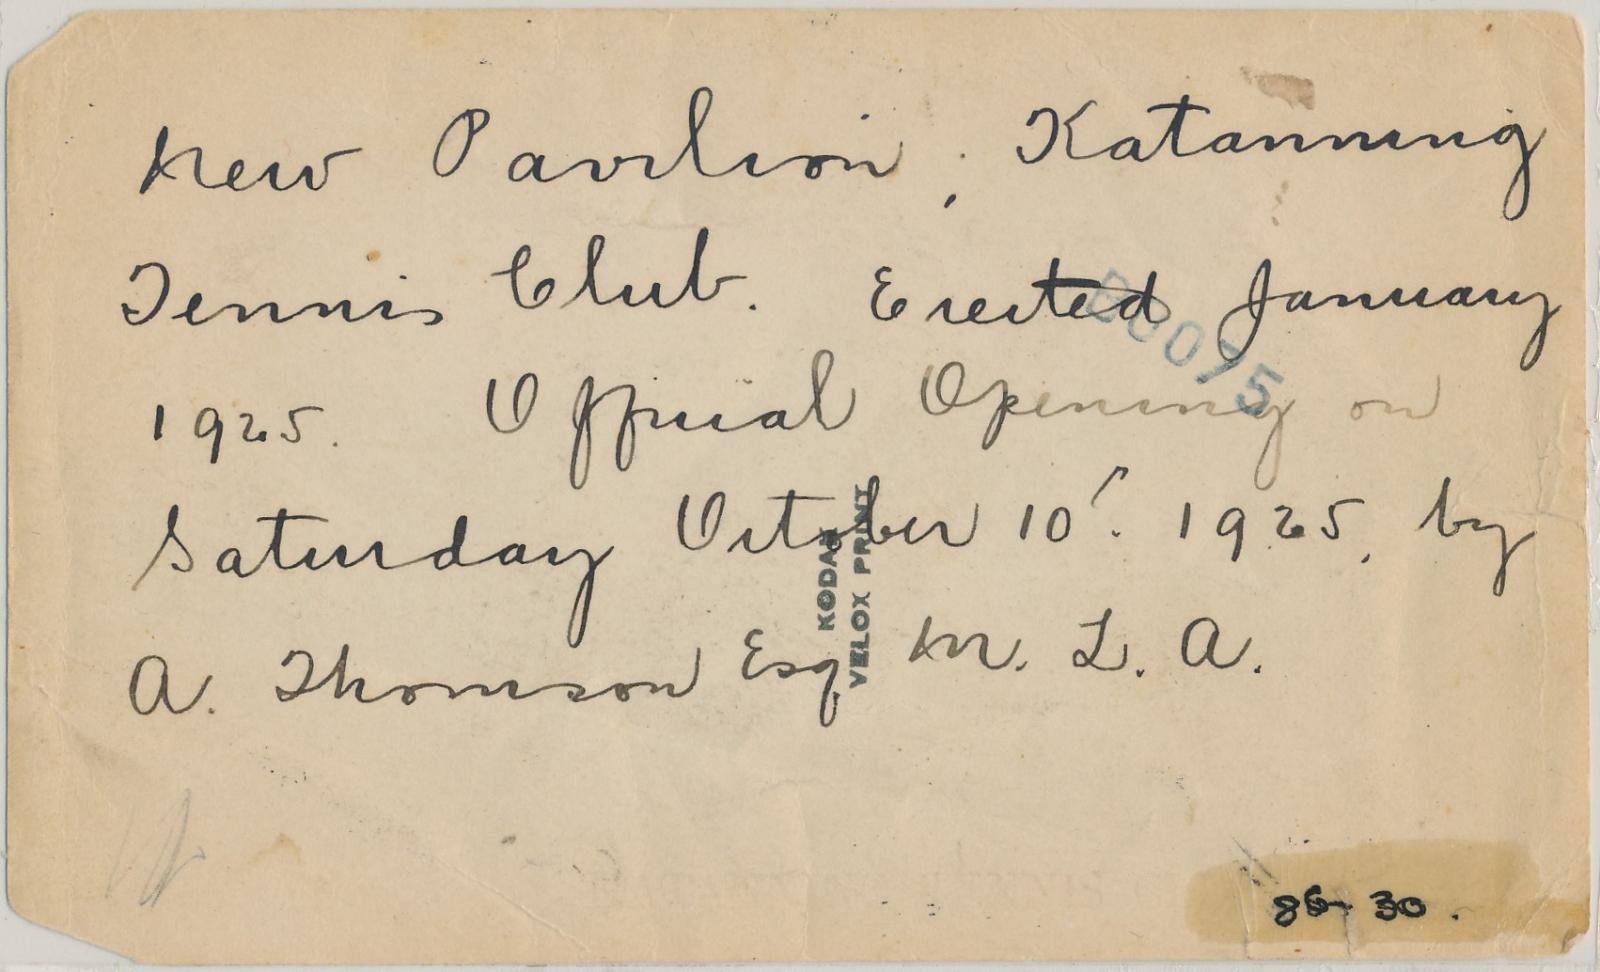 New Pavilion, Katanning
Tennis Club. Erected January
1925. Official Opening on
Saturday October 10'. 1925, by
A. Thomson Esq M. L. A.
KODAK
VELOX PRINT
86-30.